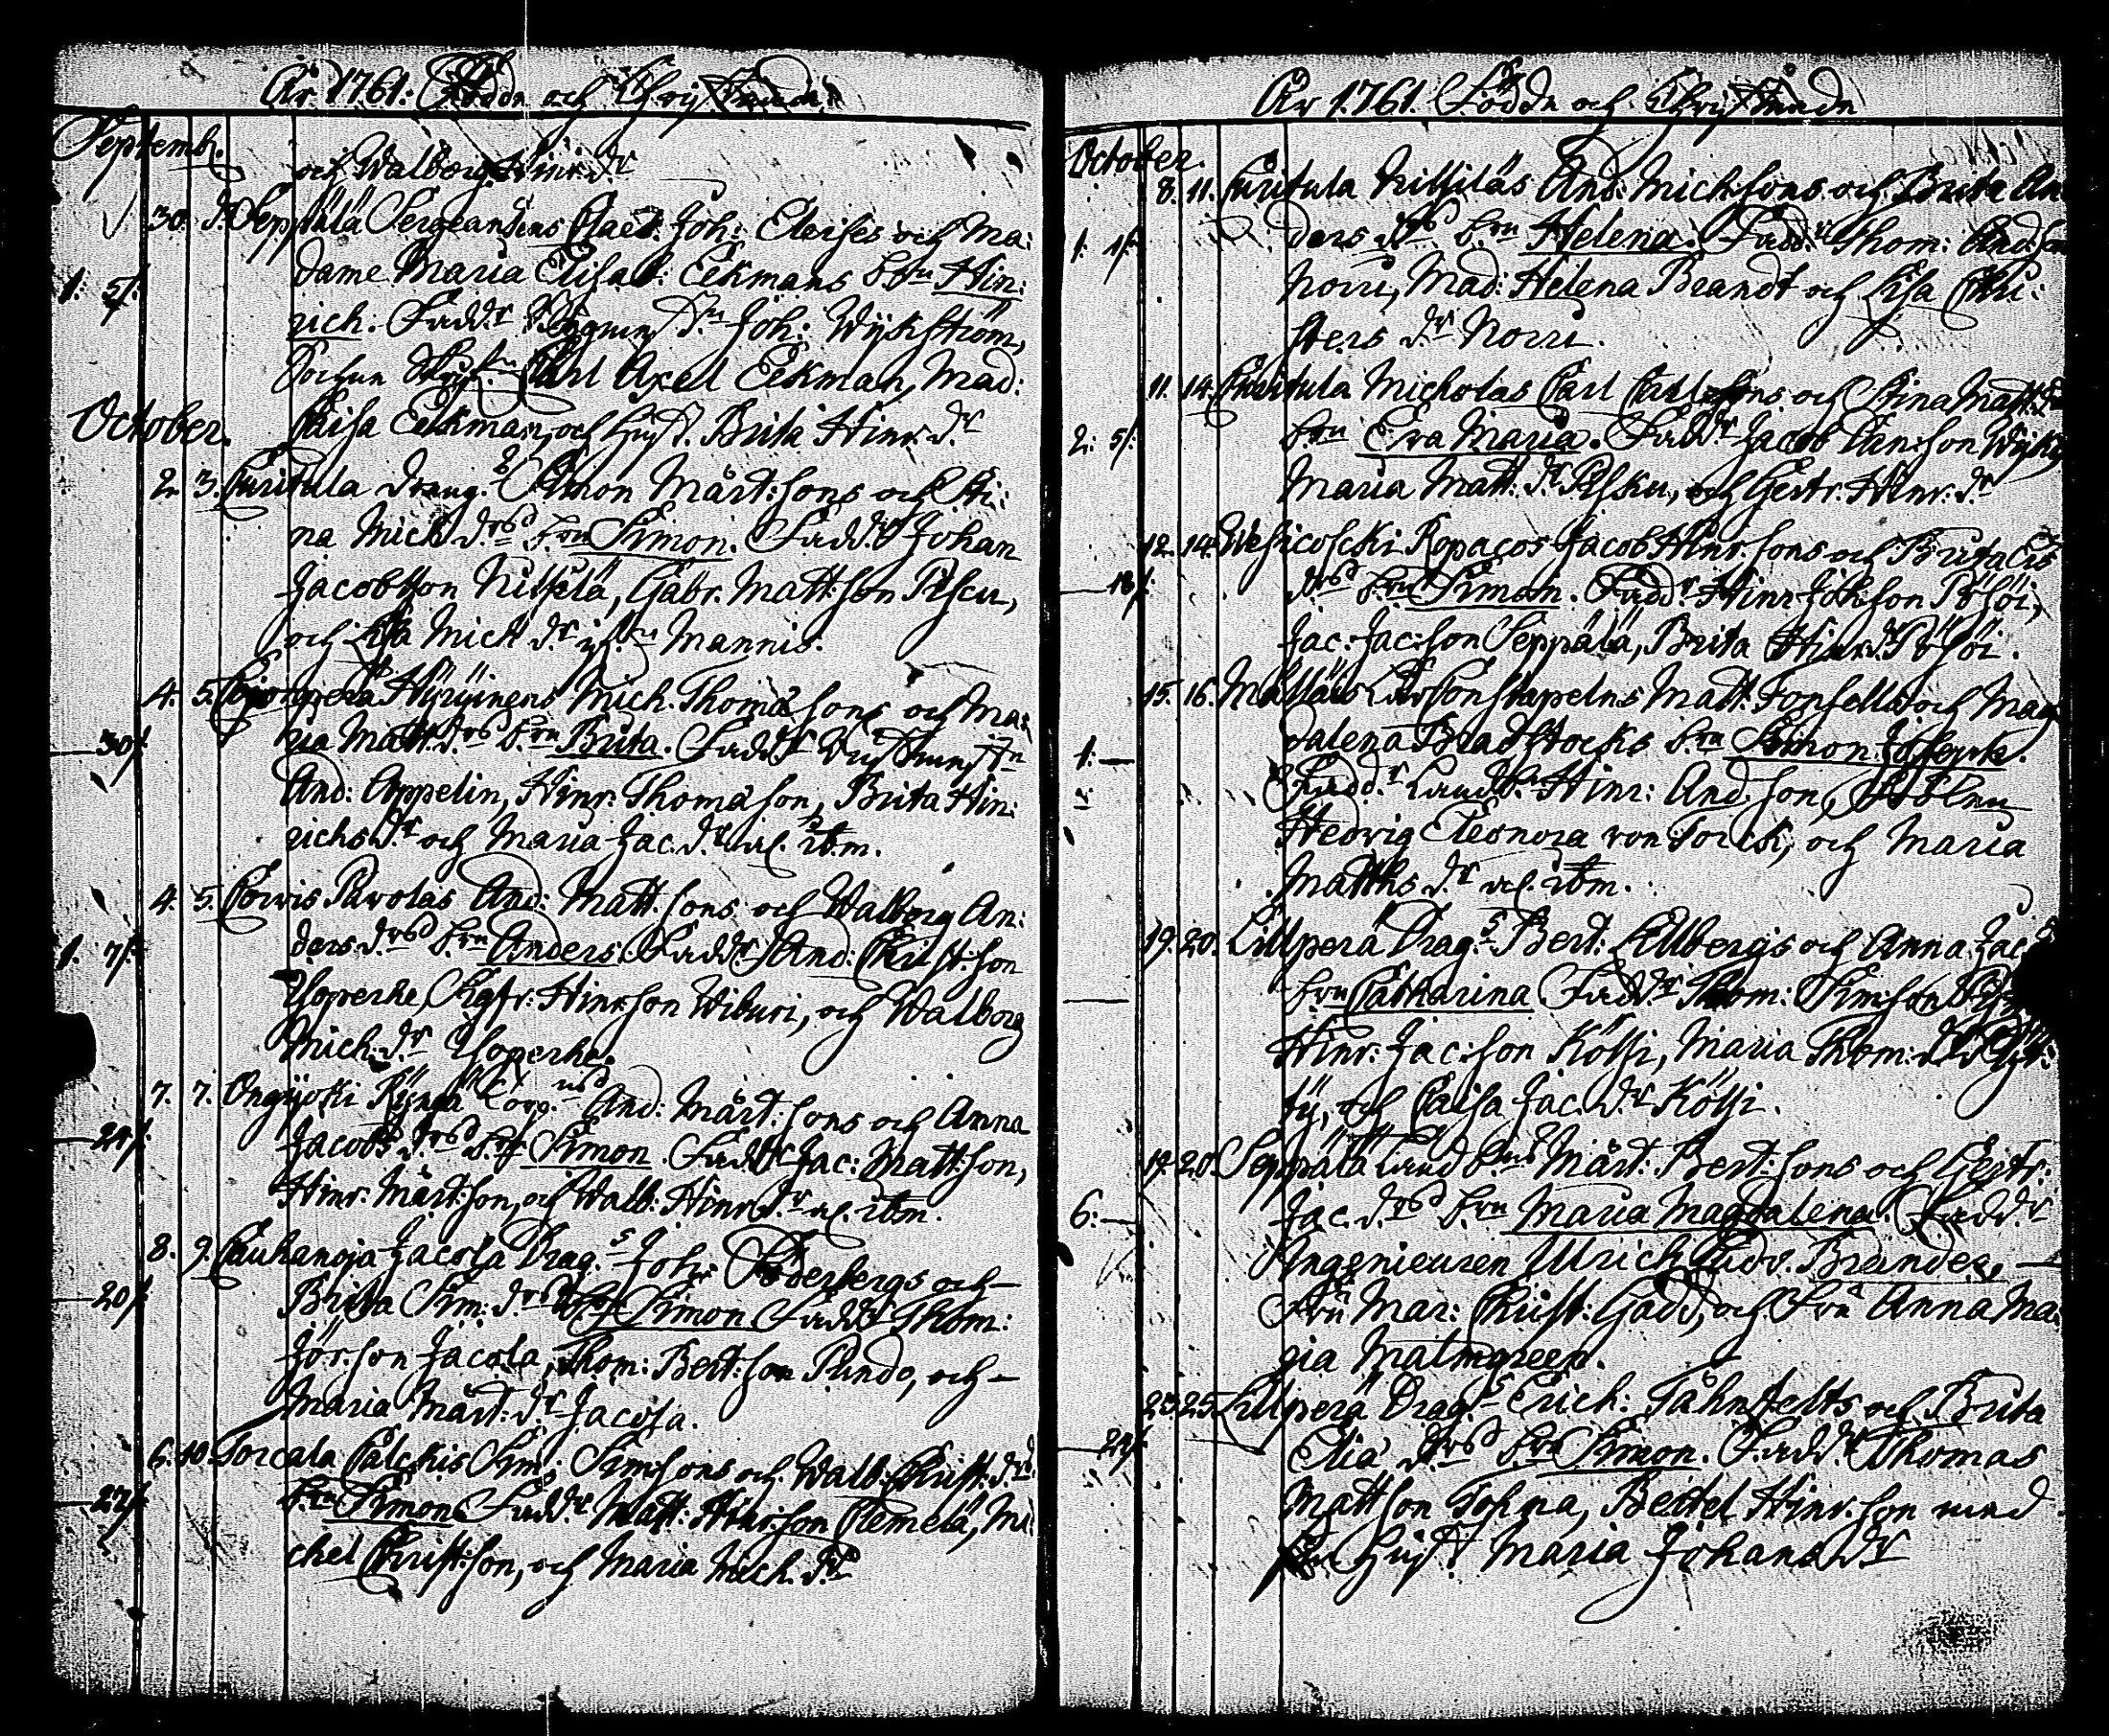 År 1761. Födde och Christnade
Septemb.
och Walborg Hinr. dr
30. d. Seppälä Sergeantens Claes Joh: Eleises och Ma:
dame Maria Elisab: Eekmans b. Sn Hin:
1. 5/.
rich. Fadd.r Joh: Wijkström,
Carl Axel Eekman, Mad:
Caisa Eekman, och Hust. Brita Hinr. dr
October.
2. 3. Curitula drang. Simon Mårt:sons och Sti:
na Mich. drs b.rn Simon. Fadd.r Johan
Jacobsson Nissilä, Gabr. Mattson Pilscu,
och Lisa Mich dr Mannis.
4. 5. Hÿrÿinens Mich. Thomæsons och Ma:
30/.
ria Matt. drs b.rn Brita. Fadd.r
And: Appelin, Hinr. Thomæson, Brita Hin:
richs dr och Maria Jac. dr ibm.
4. 5. Corvis Pavolas And: Matt.sons och Walborg An:
1. 7/.
ders drs b.rn Anders. Fadd.r And: Christ:son
Yliperhe, Hinr:son Wiburi, och Walborg
Mich. dr Yliperhe.
7. 7. Ongijoki And: Mårt:sons och Anna
24/.
Jacobs drs Simon. Fadd.r Jac: Matt:son,
Hinr: Mårt:son, och Walb: Hinr. dr ibm.
8. 9. Cauhanoja Jacola Drag.s Joh: Söderbergs och
20/.
Brita Sim: drs Simon Fadd.r Thom:
Jör:son Jacola, Thom: Bert:son Pundo, och
Maria Mårt: dr Jacola.
6. 10. Torcala Palckis Sim: Sim:sons och Walb. Christ: drs
27/.
b.rn Simon Fadd.r Matt: Hinr:son Clemelä, Mi
chel Christ:son, och Maria Mich. dr
År 1761. Födde och Christnade
October.
8. 11. Curitula Nissiläs And: Mich:sons och Brita An
1. 1/.
ders drs b.rn Helena. Fadd.r Thom: And:son
Norri, Mad: Helena Brandt och Lisa Chri:
sters dr Norri.
11. 14. Curitula Micholas Carl Carlssons och Stina Matt. drs
2. 5/.
b.rn Eva Maria. Fadd.r Jacob
Maria Matt: dr Pilsku, och Gertr. Hinr. dr
12. 14. Wesicoscki Ropacos Jacob Hinr.sons och Brita
18/.
drs b.rn Simon. Fadd.r Hinr. Joh:son Pöhöi,
Jac: Jac:son Seppälä, Brita Hinr. dr Pöhöi.
15. 16. Constapelns Matt: Fonsells och Mag
1:
dalena Bladstocks b.rn Simon
Fadd.r Hinr: And:son, Fröken
Hedvig Eleonora von Torck, och Maria
Matths dr ibm.
19. 20. Lillperä Drag.s Bert: Lillbergs och Anna Jac.
b.rn Catharina Fadd.r Thom: Sim:son
Hinr: Jac:son Kölsi, Maria Thom: dr
tÿ, och Caisa Jac. dr Kölsi.
19. 20. Seppälä Mårt: Bert:sons och Gertr:
6:
Jac. drs b.rn Maria Magdalena. Fadd.r
Ingenieuren Ulrich Ludv. Brander,
Fru Mar: Christ: Gadd, och Fru Anna Ma
ria Malmgreen.
25. Lillperä Drag.s Erich: Fåhnhelts och Brita
24/.
Eliæ drs b.rn Simon. Fadd.r Thomas
Mattson Tohna, Bertel Hinr.son med
Hust. Maria Johans dr